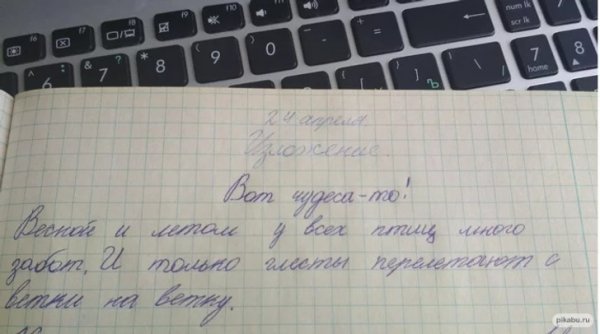 F6 F7 F8 F9 F10 F11 F12 num lk scr lk
6 7 8 9 0 - + = 7 home 8
24 апреля.
Изложение.
Вот чудеса-то!
Весной и летом у всех птиц много
забот. И только глисты перелетают с
ветки на ветку.
pikabu.ru